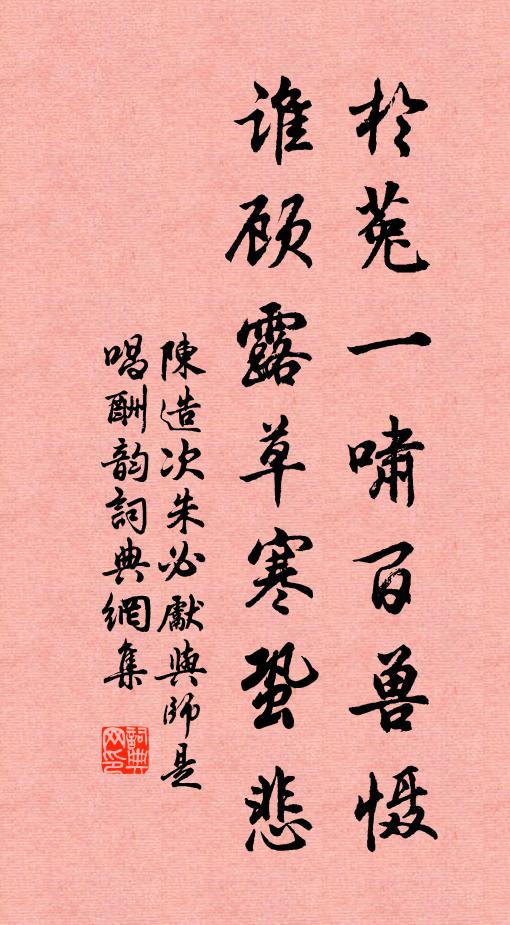 於菟一啸百兽慑
谁顾露草寒蛩悲
陳造次朱必獻與師是
唱酬韵詞典網集
詞典网印